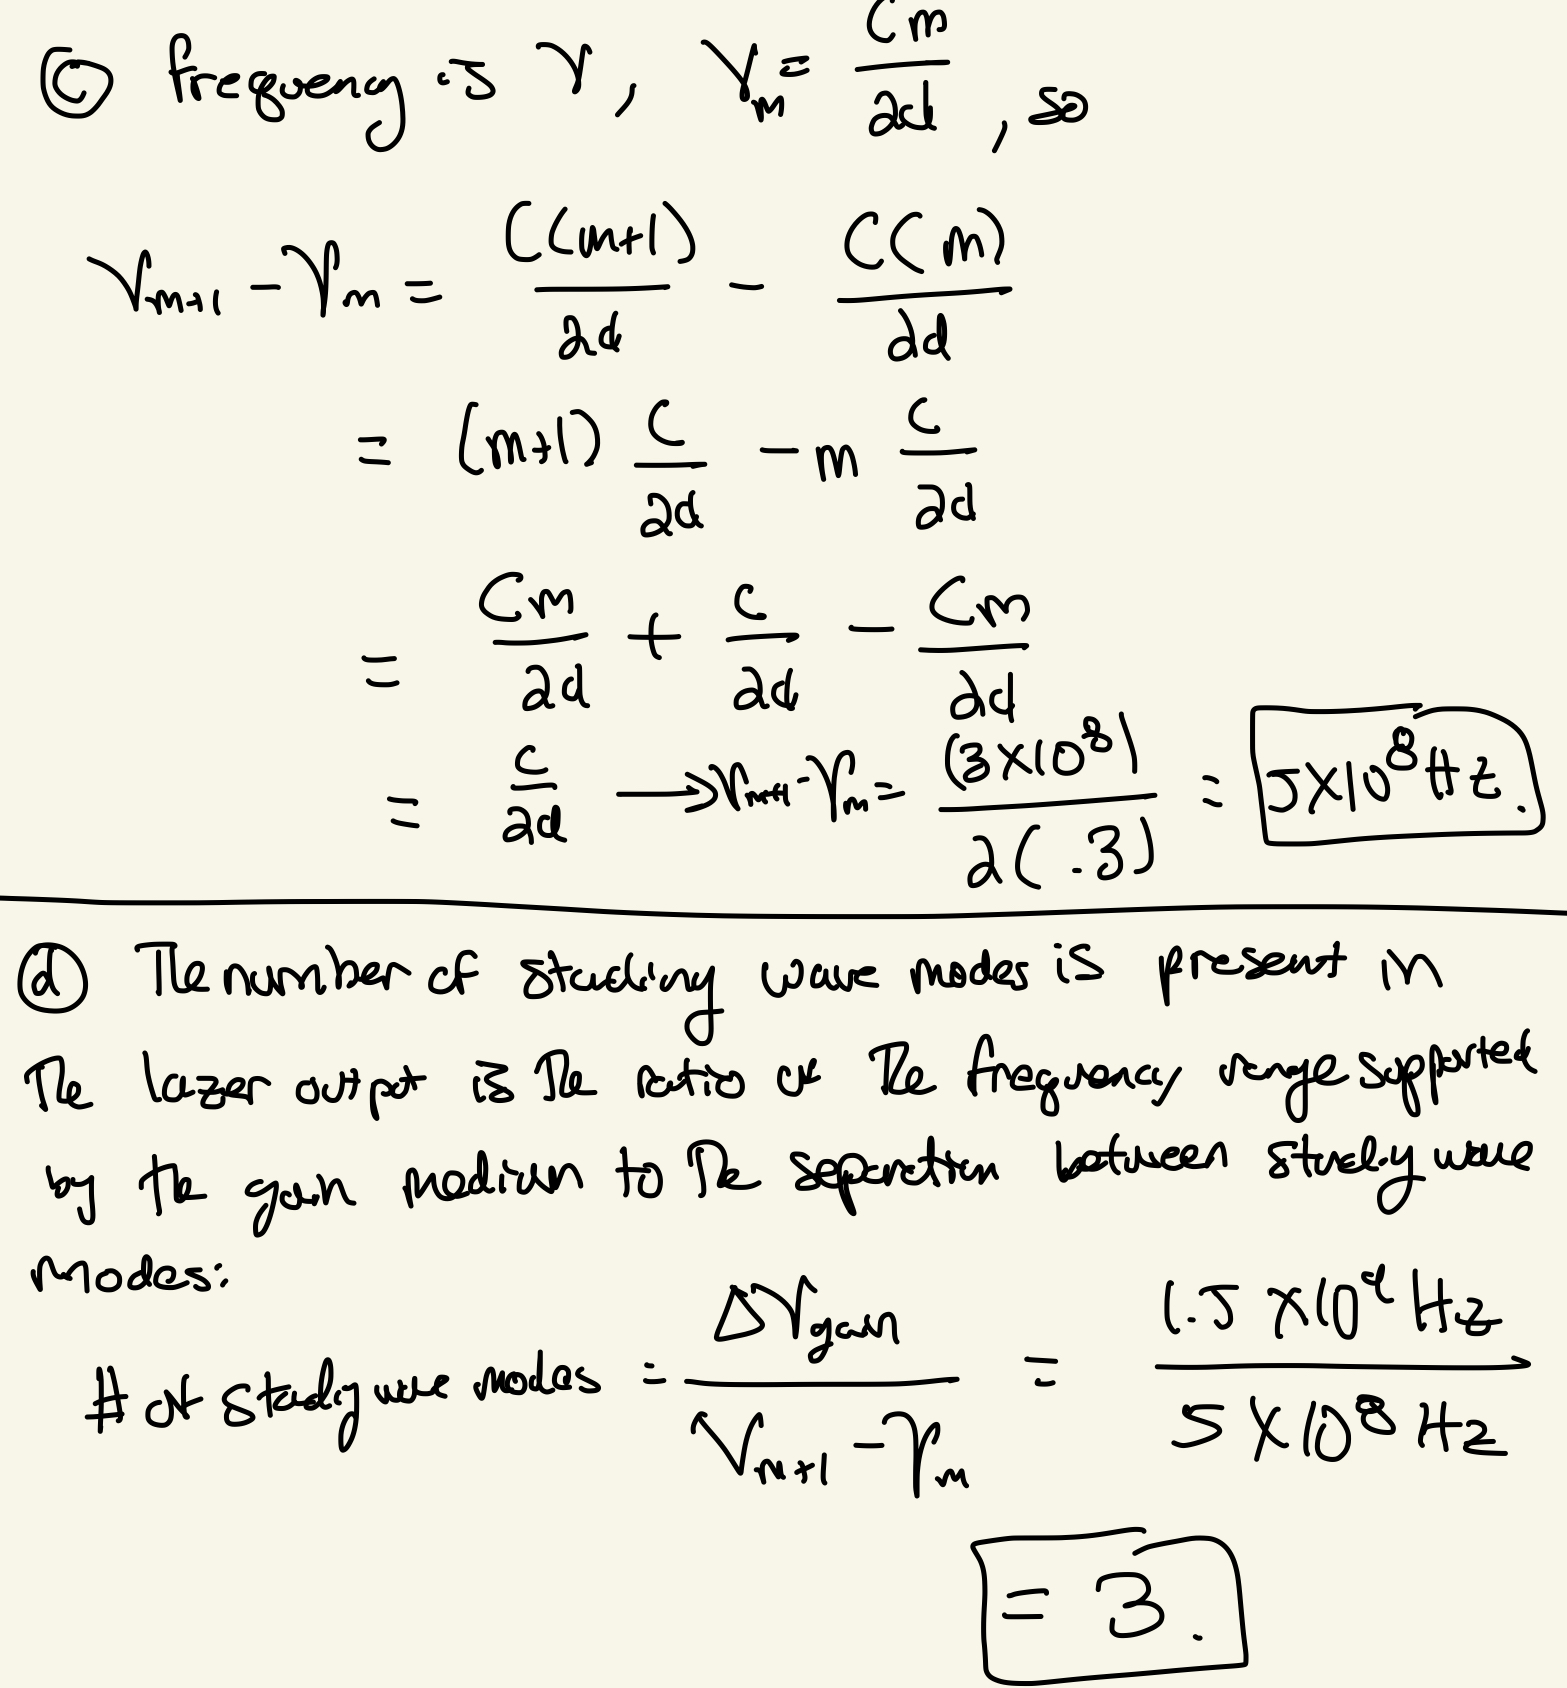 ⓒ frequency is ν, ν_m = Cm/2d, so
ν_{m+1} - ν_m = C(m+1)/2d - C(m)/2d
= (m+1) C/2d - m C/2d
= Cm/2d + C/2d - Cm/2d
= C/2d → ν_{m+1} - ν_m = (3×10^8)/2(.3) = 5×10^8 Hz.
ⓓ The number of standing wave modes is present in
The lazer output is The ratio of The frequency range supported
by the gain medium to The separation between standing wave
modes:
# of standing wave modes = Δν_gain/ν_{m+1} - ν_m = 1.5 ×10^9 Hz/5 ×10^8 Hz
= 3.